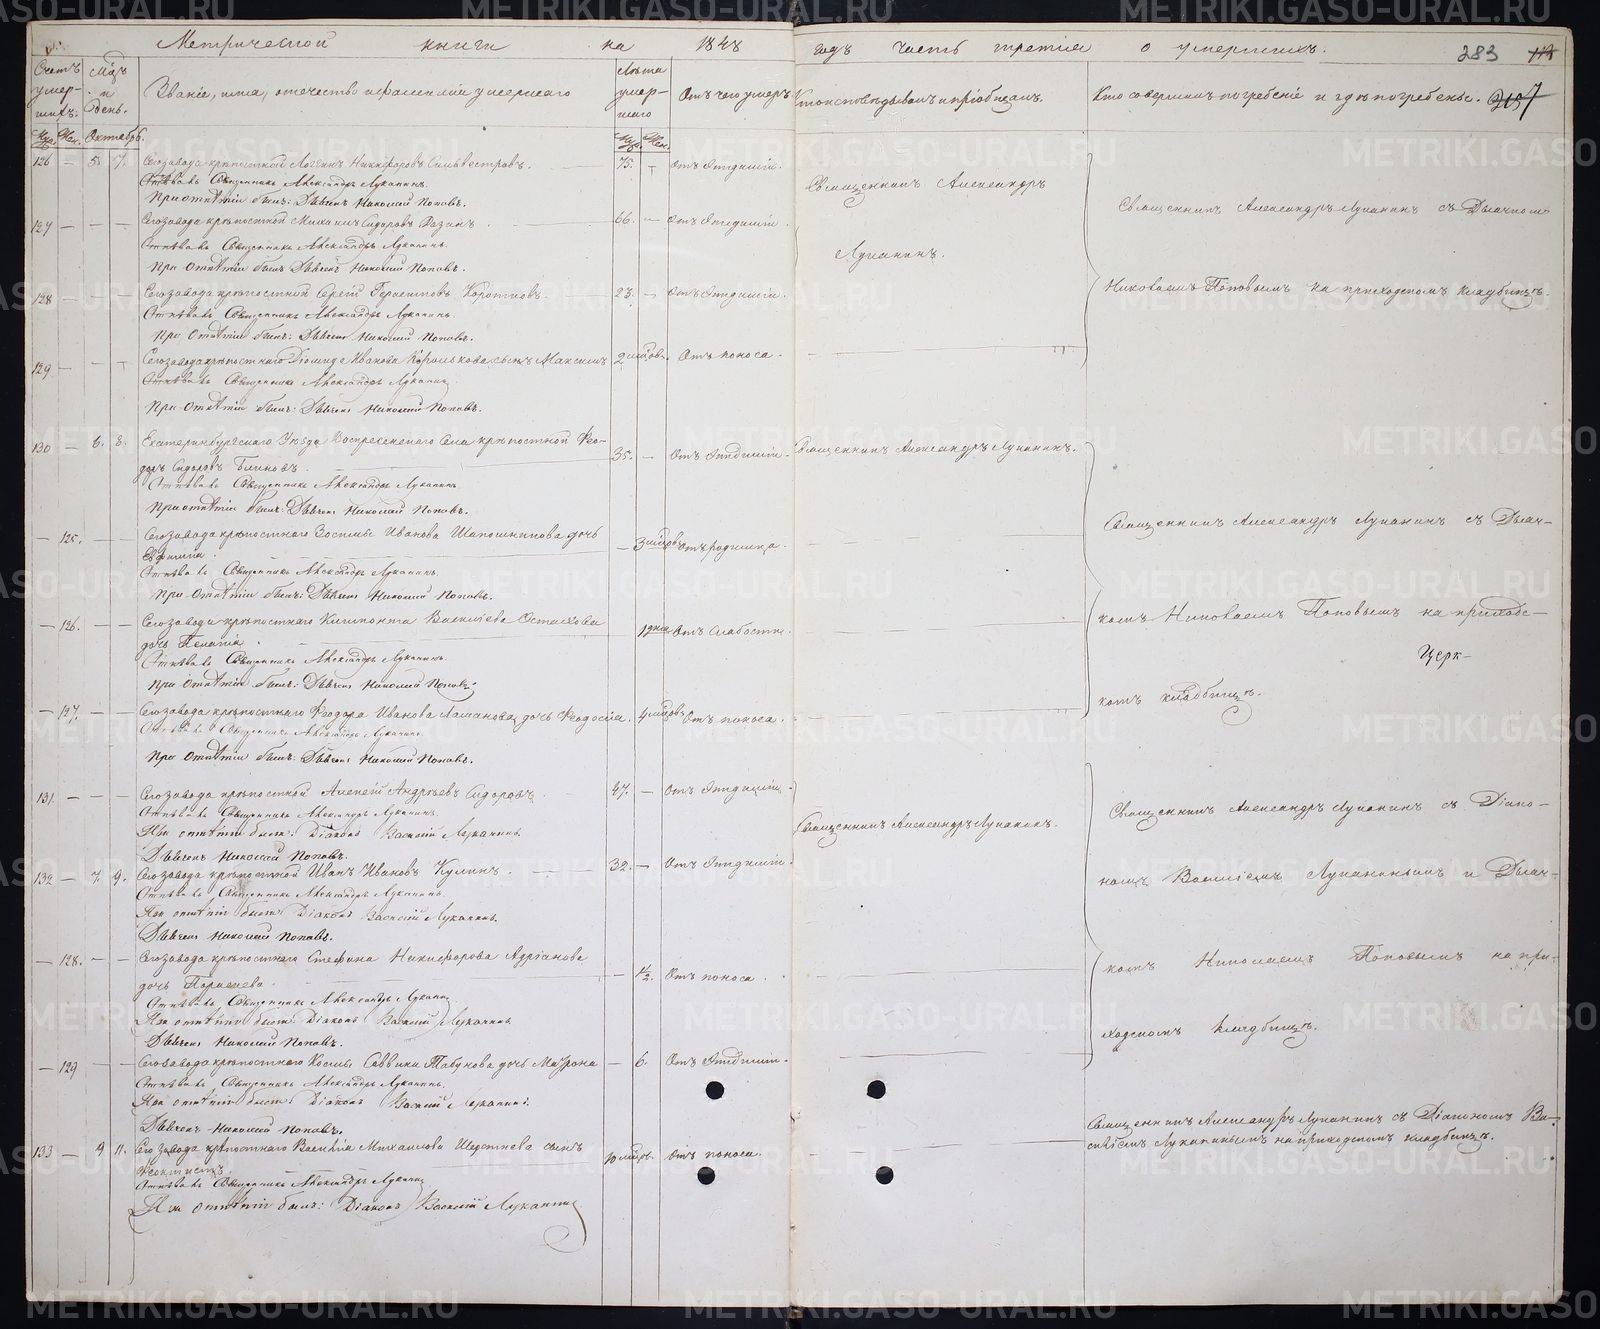 Метрической книги на 1848 годъ часть третія о умершихъ.
283
Счетъ умер-шихъ.
Мѣсяцъ и день.
Званіе, имя, отечество и фамилія умершаго
Лѣта умер-шаго
Отъ чего умеръ
Кто исповѣдывалъ и пріобщалъ.
Кто совершилъ погребеніе и гдѣ погребены.
Муж. Жен. Октябрь.
Муж. Жен.
126 — 5. 7. Сего завода крѣпостной Логинъ Никифоровъ Сильвестровъ. 75. — Отъ Эпидиміи.
Отпѣвалъ Священникъ Александръ Луканинъ.
При отпѣтіи былъ: Дьячекъ Николай Поповъ.
Священникъ Александръ
Луканинъ.
Священникъ Александръ Луканинъ съ Дьячкомъ
Николаемъ Поповымъ на приходскомъ кладбищѣ.
127 — — — Сего завода крѣпостной Михаилъ Сидоровъ Разинъ. 66. — Отъ Эпидиміи.
Отпѣвалъ Священникъ Александръ Луканинъ.
При отпѣтіи былъ Дьячекъ Николай Поповъ.
128 — — — Сего завода крѣпостной Сергій Герасимовъ Коротковъ. 23. — Отъ Эпидиміи.
Отпѣвалъ Священникъ Александръ Луканинъ.
При отпѣтіи былъ: Дьячекъ Николай Поповъ.
129 — — — Сего завода крѣпостнаго Діомида Иванова Королькова сынъ Максимъ 2 мѣсяцовъ. Отъ поноса.
Отпѣвалъ Священникъ Александръ Луканинъ
При отпѣтіи былъ: Дьячекъ Николай Поповъ.
130 — 6. 8. Екатеринбургскаго Уѣзда Воскресенскаго Села крѣпостной Ѳео-
доръ Сидоровъ Блиновъ. 35. — Отъ Эпидиміи.
Отпѣвалъ Священникъ Александръ Луканинъ
При отпѣтіи былъ: Дьячекъ Николай Поповъ.
Священникъ Александръ Луканинъ.
Священникъ Александръ Луканинъ съ Дьяч-
комъ Николаемъ Поповымъ на приходс-
Церк-
комъ кладбищѣ.
— 125. — — Сего завода крѣпостнаго Зосимы Иванова Шапошникова дочь
Евфимія. — 3 мѣсяцовъ Отъ родимца.
Отпѣвалъ Священникъ Александръ Луканинъ.
При отпѣтіи былъ: Дьячекъ Николай Поповъ.
— 126. — — Сего завода крѣпостнаго Василіева Осталова
дочь Пелагія. 1 дня Отъ слабости.
Отпѣвалъ Священникъ Александръ Луканинъ.
При отпѣтіи былъ: Дьячекъ Николай Поповъ.
— 127. — — Сего завода крѣпостнаго Ѳеодора Иванова дочь Ѳеодосія. 4 мѣсяцовъ Отъ поноса.
Отпѣвалъ Священникъ Александръ Луканинъ.
При отпѣтіи былъ: Дьячекъ Николай Поповъ.
131. — — — Сего завода крѣпостной Алексій Андреевъ Сидоровъ. 47. — Отъ Эпидиміи.
Отпѣвалъ Священникъ Александръ Луканинъ.
При отпѣтіи были: Діаконъ Василій Луканинъ
Дьячекъ Николай Поповъ.
Священникъ Александръ Луканинъ.
Священникъ Александръ Луканинъ съ Діако-
номъ Василіемъ Луканинымъ и Дьяч-
комъ Николаемъ Поповымъ на при-
ходскомъ кладбищѣ.
132 — 7. 9. Сего завода крѣпостной Иванъ Ивановъ Кулинъ. 32. — Отъ Эпидиміи.
Отпѣвалъ Священникъ Александръ Луканинъ.
При отпѣтіи были: Діаконъ Василій Луканинъ.
Дьячекъ Николай Поповъ.
— 128. — — Сего завода крѣпостнаго Стефана Никифорова Адріанова
дочь Параскева. — 1/2. Отъ поноса.
Отпѣвалъ Священникъ Александръ Луканинъ
При отпѣтіи были: Діаконъ Василій Луканинъ.
Дьячекъ Николай Поповъ.
— 129 — — Сего завода крѣпостнаго Космы Саввина Табунова дочь Матрона — 6. Отъ Эпидиміи.
Отпѣвалъ Священникъ Александръ Луканинъ.
При отпѣтіи были: Діаконъ Василій Луканинъ.
Дьячекъ Николай Поповъ.
133 — 9 11. Сего завода крѣпостнаго Василія Михаилова Шерстнева сынъ
Ѳеоктистъ. 10 мѣсяцовъ. Отъ поноса.
Отпѣвалъ Священникъ Александръ Луканинъ
При отпѣтіи былъ: Діаконъ Василій Луканинъ
Священникъ Александръ Луканинъ съ Діакономъ Ва-
силіемъ Луканинымъ на приходскомъ кладбищѣ.
METRIKI.GASO-URAL.RU